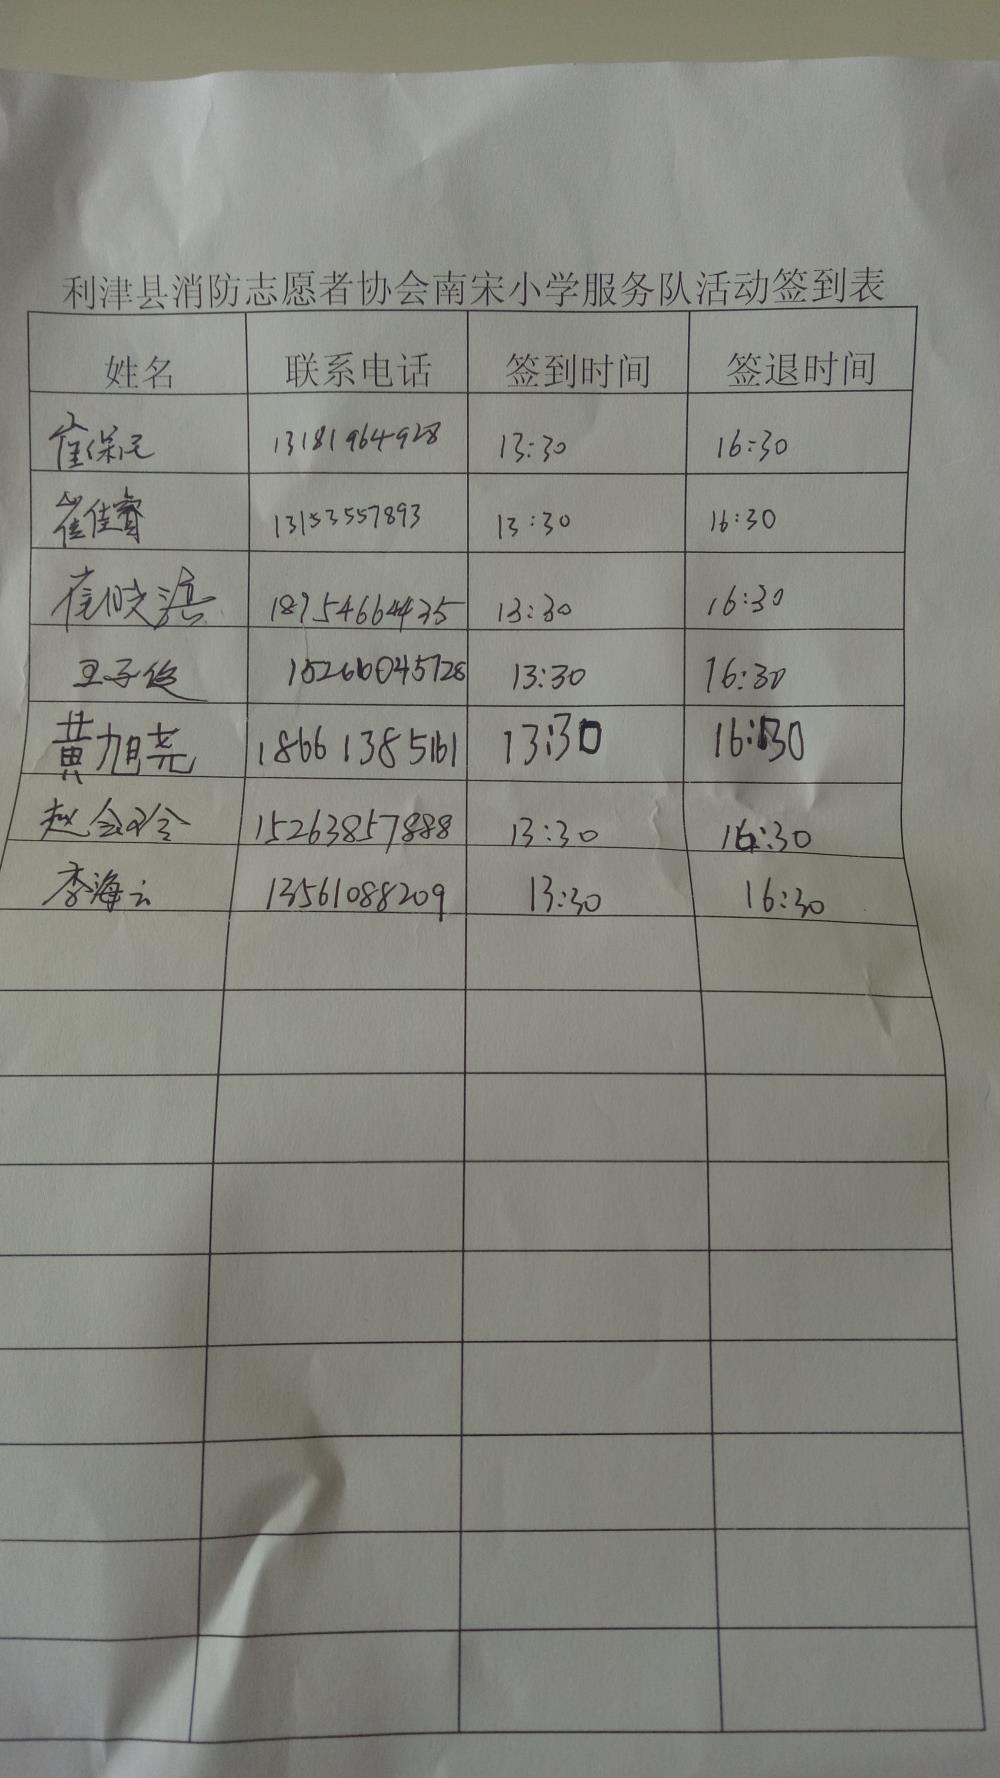 利津县消防志愿者协会南宋小学服务队活动签到表
姓名 联系电话 签到时间 签退时间
崔保民 13181964928 13:30 16:30
崔佳睿 13153557893 13:30 16:30
崔晓滨 18954664435 13:30 16:30
王子俊 15266045728 13:30 16:30
黄旭尧 18661385161 13:30 16:30
赵会玲 15263857888 13:30 16:30
李海云 13561088209 13:30 16:30